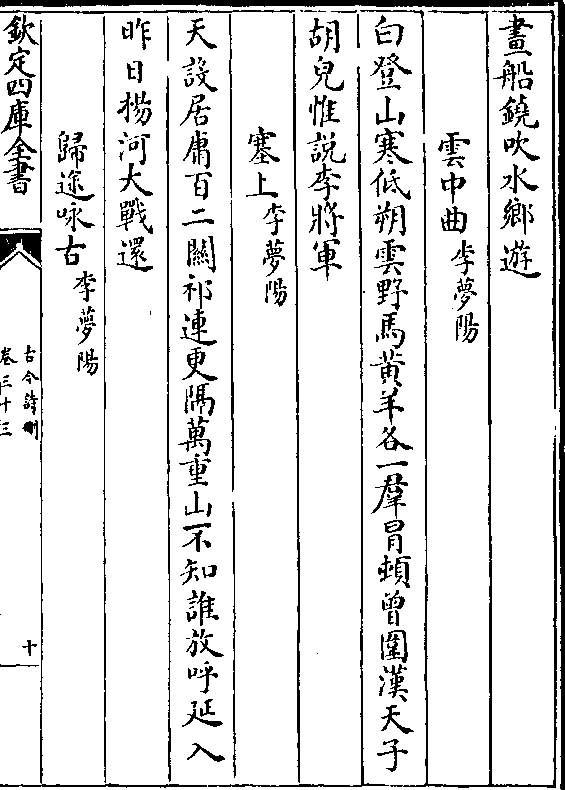 畫船鐃吹水鄉遊
雲中曲 李夢陽
白登山寒低朔雲野馬黄羊各一羣冒頓曾圍漢天子
胡兒惟説李將軍
塞上 李夢陽
天設居庸百二關祁連更隔萬重山不知誰放呼延入
昨日楊河大戰還
歸途咏古 李夢陽
欽定四庫全書
古今詩刪
卷三十三
十